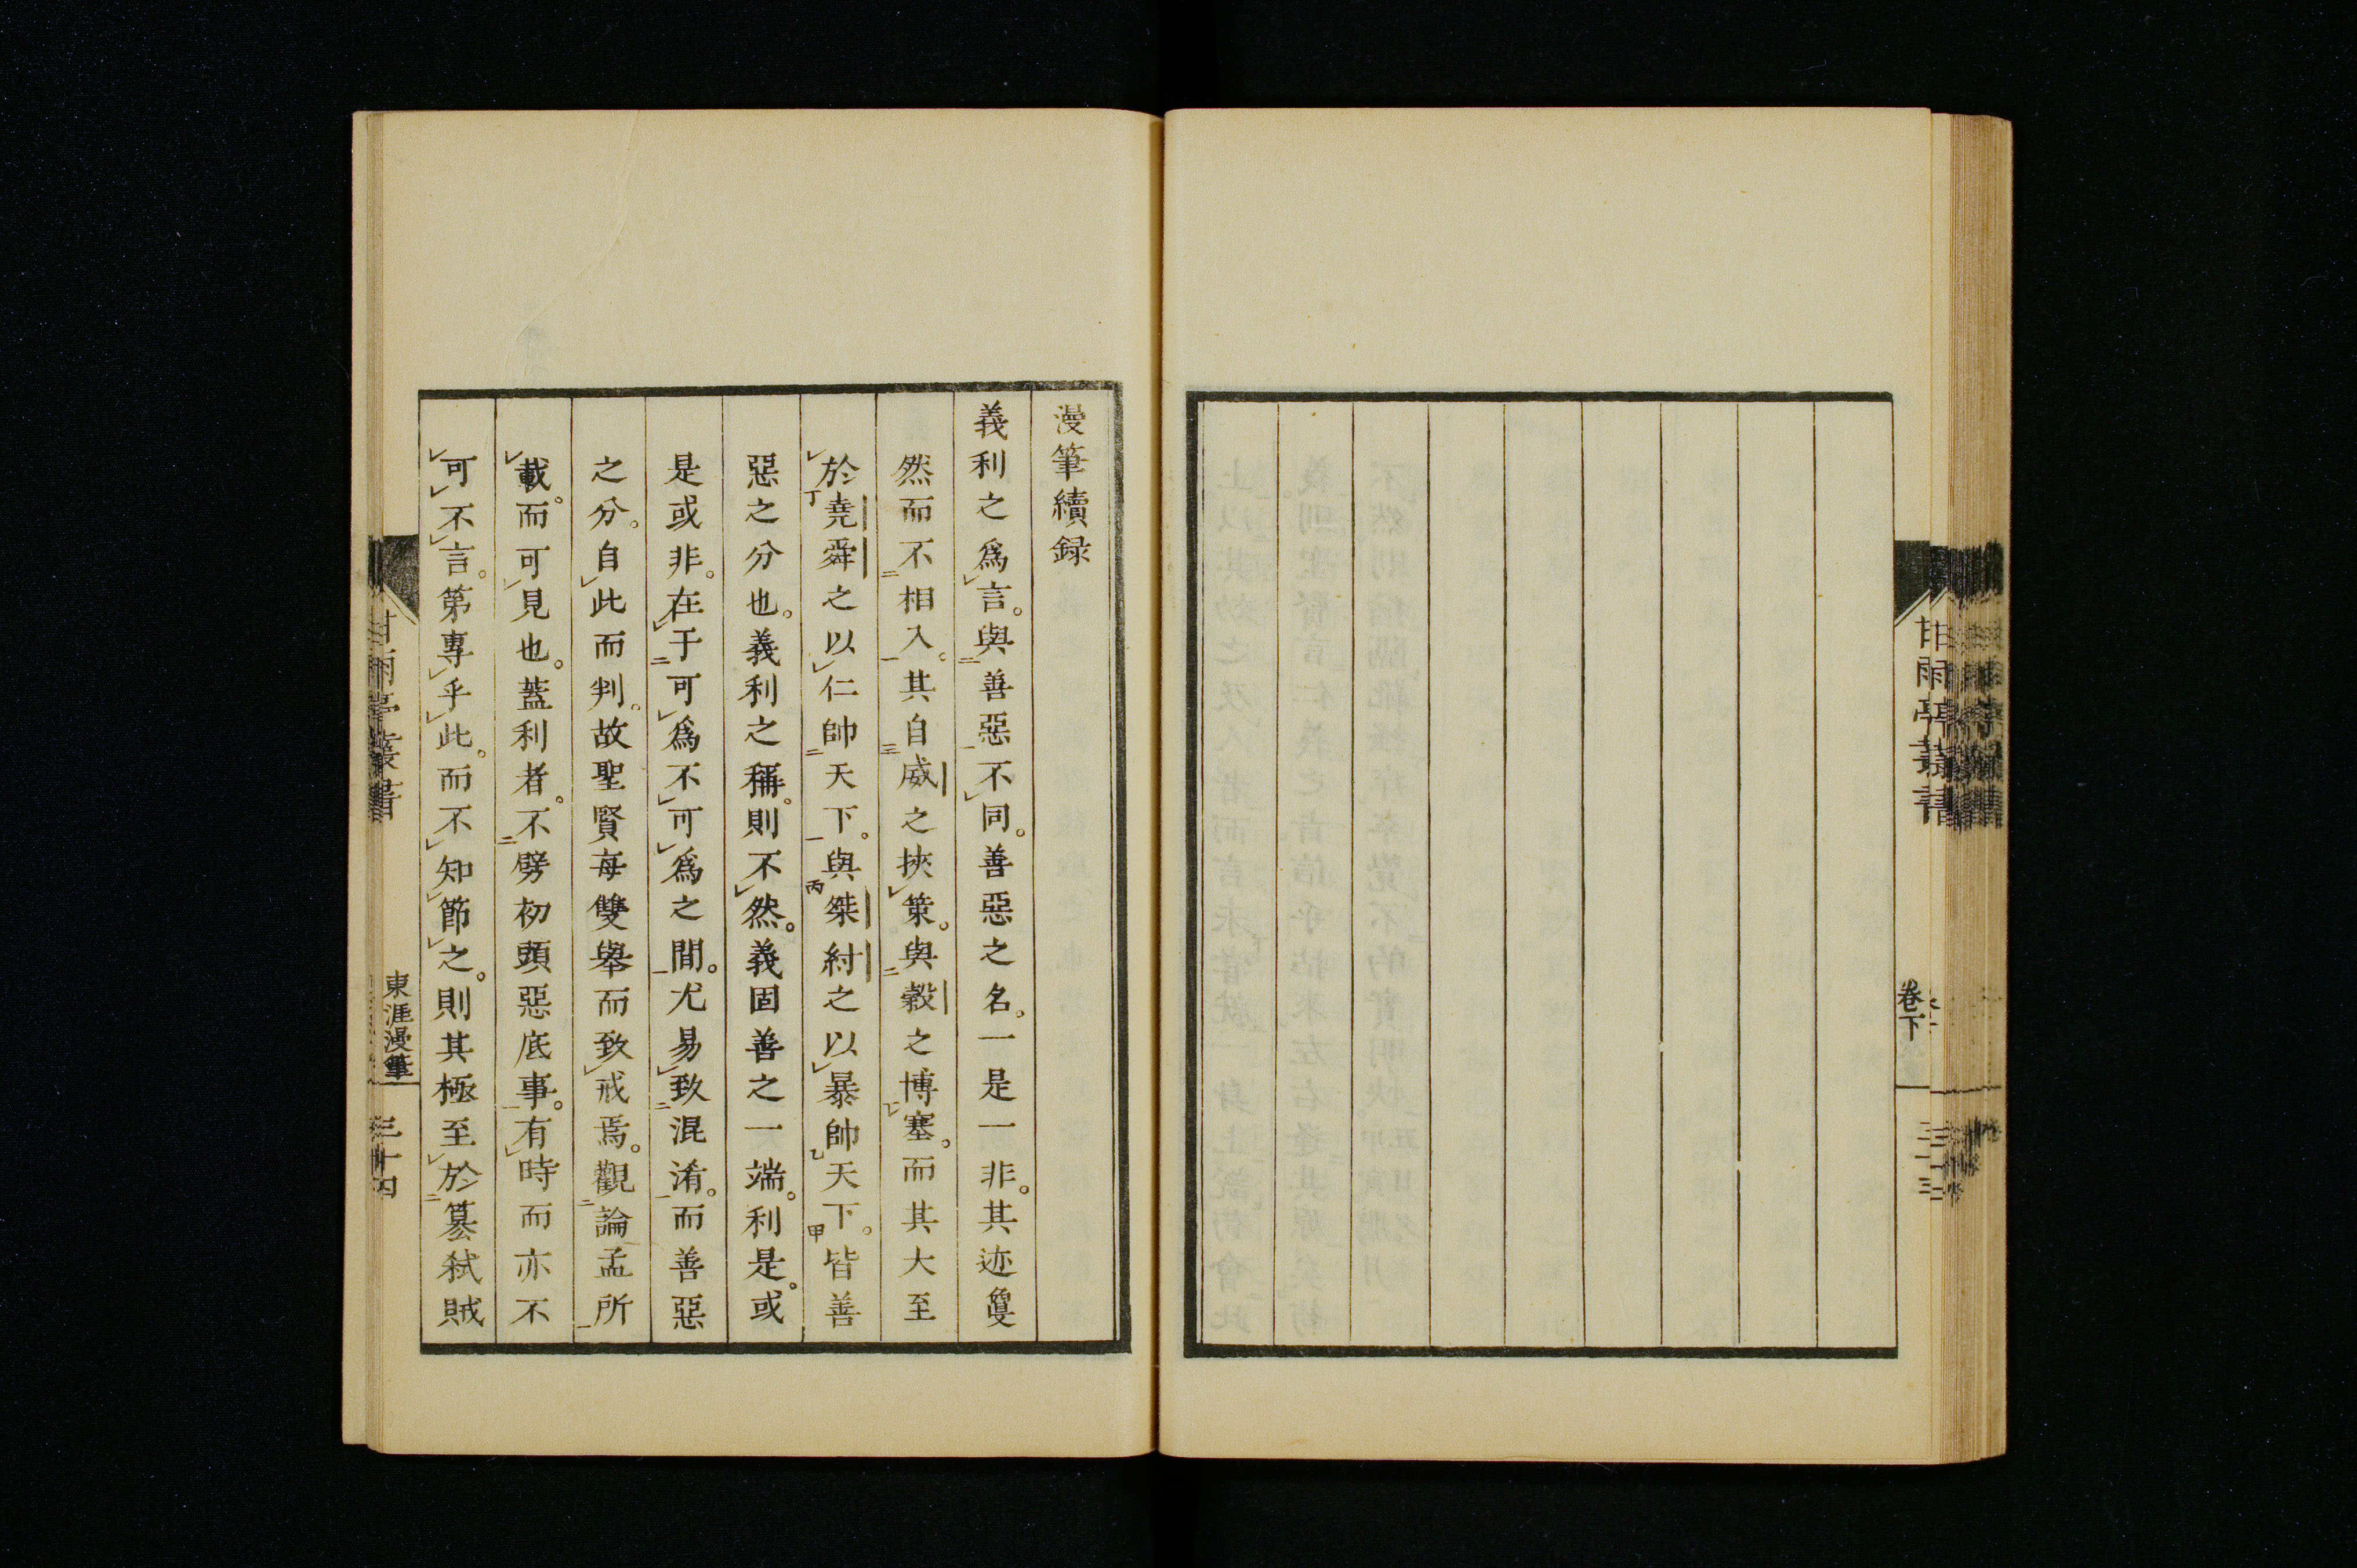 甘雨亭叢書
卷下
漫筆續録
義利之爲言。與善惡不同。善惡之名。一是一非。其迹夐
然而不相入。其自臧之挾策。與穀之博塞。而其大至
於堯舜之以仁帥天下。與桀紂之以暴帥天下。皆善
惡之分也。義利之稱。則不然。義固善之一端。利是。或
是或非。在于可爲不可爲之間。尤易致混淆。而善惡
之分。自此而判。故聖賢每雙舉而致戒焉。觀論孟所
載。而可見也。蓋利者。不劈初頭惡底事。有時而亦不
可不言。第專乎此。而不知節之。則其極至於簒弑賊
甘雨亭叢書
東涯漫筆
三十四